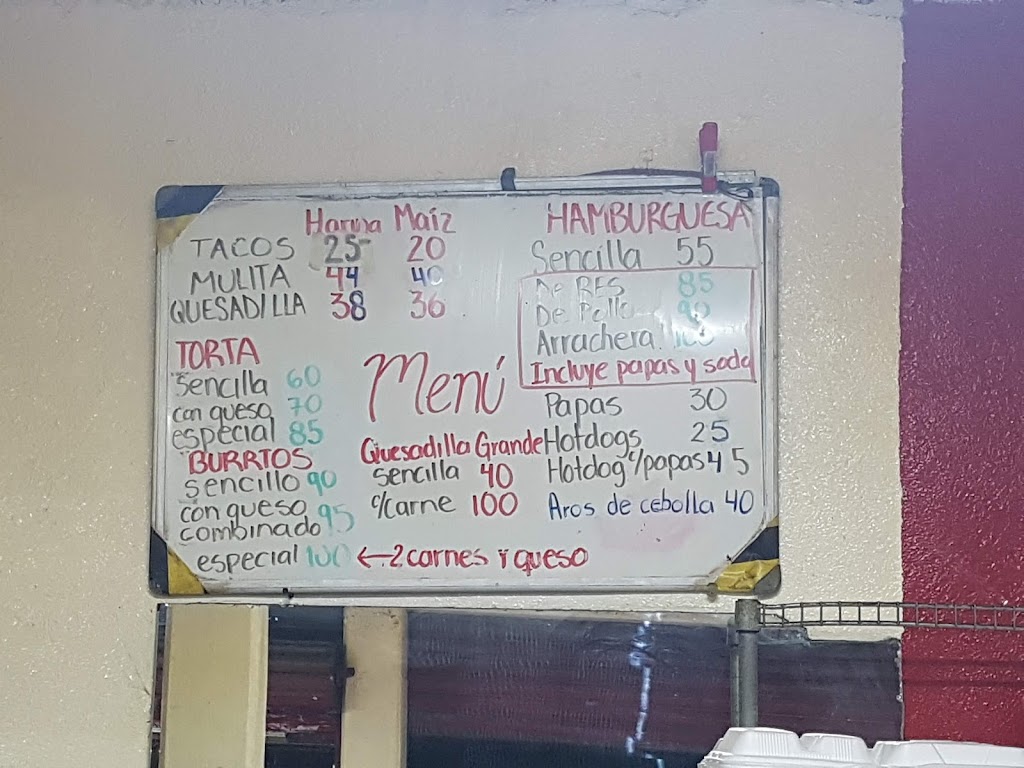 Harina Maíz
TACOS 25 20
MULITA 44 40
QUESADILLA 38 36
TORTA
Sencilla 60
con queso 70
especial 85
BURRTOS
sencillo 90
con queso
combinado 95
especial 100 ← 2 carnes y queso
Menú
Quesadilla Grande
sencilla 40
c/carne 100
HAMBURGUESA
Sencilla 55
De RES 85
De Pollo 90
Arrachera 100
Incluye papas y soda
Papas 30
Hotdogs 25
Hotdog c/papas 45
Aros de cebolla 40